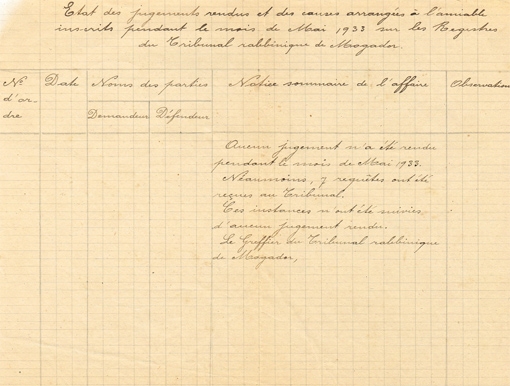 Etat des jugements rendus et des causes arrangées à l'amiable
inscrits pendant le mois de Mai 1933 sur les Registres
du Tribunal rabbinique de Mogador.
N°
d'or-
dre
Date
Noms des parties
Demandeur
Défendeur
Notice sommaire de l'affaire
Observation
Aucun jugement n'a été rendu
pendant le mois de Mai 1933.
Néanmoins, 7 requêtes ont été
reçues au Tribunal.
Ces instances n'ont été suivies
d'aucun jugement rendu.
Le Greffier du Tribunal rabbinique
de Mogador,